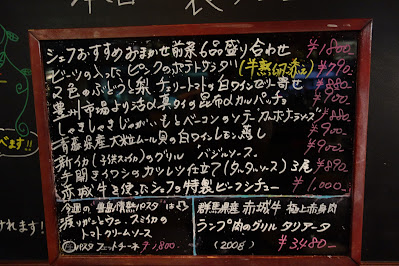 シェフおすすめおまかせ前菜6品盛り合わせ ¥1800
ビーツの入ったピンクのポテトサラダ(半熟卵添え) ¥790
2色のぶどうと梨、チェリートマトの白ワインゼリー寄せ ¥880
豊州市場より活〆真ダイの昆布〆カルパッチョ ¥900
しゃきしゃきじゃがいもとベーコンのソテー カルボナーラ ¥880
青森県産 大粒ムール貝の白ワインレモン蒸し ¥900
新イカ(スミイカ)のグリル バジルソース ¥900
手開きイワシのカツレツ仕立て(タルタルソース)3尾 ¥890
赤城牛を使ったシェフの特製ビーフシチュー ¥1,000
べます!!
けれます!
今週の 豊島情熱パスタ は
渡りガニとウニ、スミイカの
トマトクリームソース
パスタ フェットチーネ ¥1,800
群馬県産 赤城牛 極上赤身肉
ランプ肉のグリル タリアータ
(200g) ¥3,480